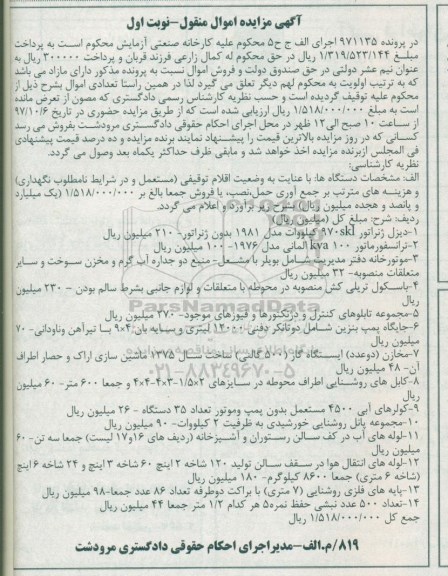 آگهی مزایده اموال منقول-نوبت اول
در پرونده ۹۷۱۱۳۵ اجرای الف ج ح۵ محکوم علیه کارخانه صنعتی آزمایش محکوم است به پرداخت
مبلغ ۱/۳۱۹/۵۲۳/۱۴۴ ریال در حق محکوم له کمال زارعی فرزند قربان و پرداخت ۳۰۰۰۰۰ ریال به
عنوان نیم عشر دولتی در حق صندوق دولت و فروش اموال نسبت به پرونده مذکور دارای مازاد می باشد
که به ترتیب اولویت به محکوم لهم دیگر تعلق می گیرد لذا در همین راستا تعدادی اموال بشرح ذیل از
محکوم علیه توقیف گردیده است و حسب نظریه کارشناس رسمی دادگستری که مصون از تعرض مانده
است به مبلغ ۱/۵۱۸/۰۰۰/۰۰۰ ریال ارزیابی شده است که از طریق مزایده حضوری در تاریخ ۹۷/۱۰/۶
از ساعت ۱۰ صبح الی ۱۲ ظهر در محل اجرای احکام حقوقی دادگستری مرودشت بفروش می رسد
کسانی که در روز مزایده بالاترین قیمت را پیشنهاد نمایند برنده مزایده و ده درصد قیمت پیشنهادی
فی المجلس ازبرنده مزایده اخذ خواهد شد و مابقی ظرف حداکثر یکماه بعد وصول می گردد.
نظریه کارشناسی:
الف: مشخصات دستگاه ها: با عنایت به وضعیت اقلام توقیفی (مستعمل و در شرایط نامطلوب نگهداری)
و هزینه های مترتب بر جمع آوری حمل،نصب، یا فروش جمعا بالغ بر ۱/۵۱۸/۰۰۰/۰۰۰ (یک میلیارد
و پانصد و هجده میلیون ریال) بشرح زیر برآورد و اعلام می گردد.
ردیف: شرح: مبلغ کل (میلیون ریال)
۱-دیزل ژنراتور ۹۷۰skl کیلووات مدل ۱۹۸۱ بدون ژنراتور- ۲۱۰ میلیون ریال
۲-ترانسفورماتور ۱۰۰ kva آلمانی مدل ۱۹۷۶- ۱۰۰ میلیون ریال
۳-موتورخانه دفتر مدیریت شامل بویلر با مشعل-منبع دو جداره آب گرم و مخزن سوخت و سایر
متعلقات منصوبه- ۳۲ میلیون ریال
۴-باسکول تریلی کش منصوبه در محوطه با متعلقات و لوازم جانبی بشرط سالم بودن - ۲۳۰ میلیون
ریال
۵-مجموعه تابلوهای کنترل و دژنکتورها و فیوزهای موجود- ۳۷۰ میلیون ریال
۶-جایگاه پمپ بنزین شامل دوتانکر دفنی ۱۲۰۰۰ لیتری و سایه بان ۴×۹ با تیرآهن وناودانی- ۷۰
میلیون ریال
۷-مخازن (دوعدد) ایستگاه گاز (۵۰۰ گالنی) ساخت سال ۱۳۷۵ فنس سازی اراک و حصار اطراف
آن- ۴۸ میلیون ریال
۸-کابل های روشنایی اطراف محوطه در سایزهای ۲×۱/۵-۳×۴-۴×۴ و جمعا ۶۰۰ متر- ۶۰ میلیون
ریال
۹-کولرهای آبی ۴۵۰۰ مستعمل بدون پمپ وموتور تعداد ۳۵ دستگاه - ۲۶ میلیون ریال
۱۰-مجموعه پانل روشنایی خورشیدی به ظرفیت ۲ کیلووات- ۹۰ میلیون ریال
۱۱-لوله های آب در کف سالن رستوران و آشپزخانه (ردیف های ۱۶و۱۷ لیست) جمعا سه تن- ۶۰
میلیون ریال
۱۲-لوله های انتقال هوا در سقف سالن تولید ۱۲۰ شاخه ۲ اینچ ۶۰ شاخه ۳ اینچ و ۲۴ شاخه ۶ اینچ
(شاخه ۶ متری) جمعا ۸۶۰۰ کیلوگرم- ۱۸۰ میلیون ریال
۱۳-پایه های فلزی روشنایی (۷ متری) با براکت دوطرفه تعداد ۸۶ عدد جمعا-۹۸ میلیون ریال
۱۴-تعداد ۵۰۰ عدد نبشی حفظ نمره۵ هر کدام ۱/۲ متر جمعا ۴۴ میلیون ریال
جمع کل ۱/۵۱۸/۰۰۰/۰۰۰ ریال
۸۱۹/م.الف-مدیراجرای احکام حقوقی دادگستری مرودشت
ParsNamadData
۰۲۱-۸۸۳۴۹۶۷۰-۵